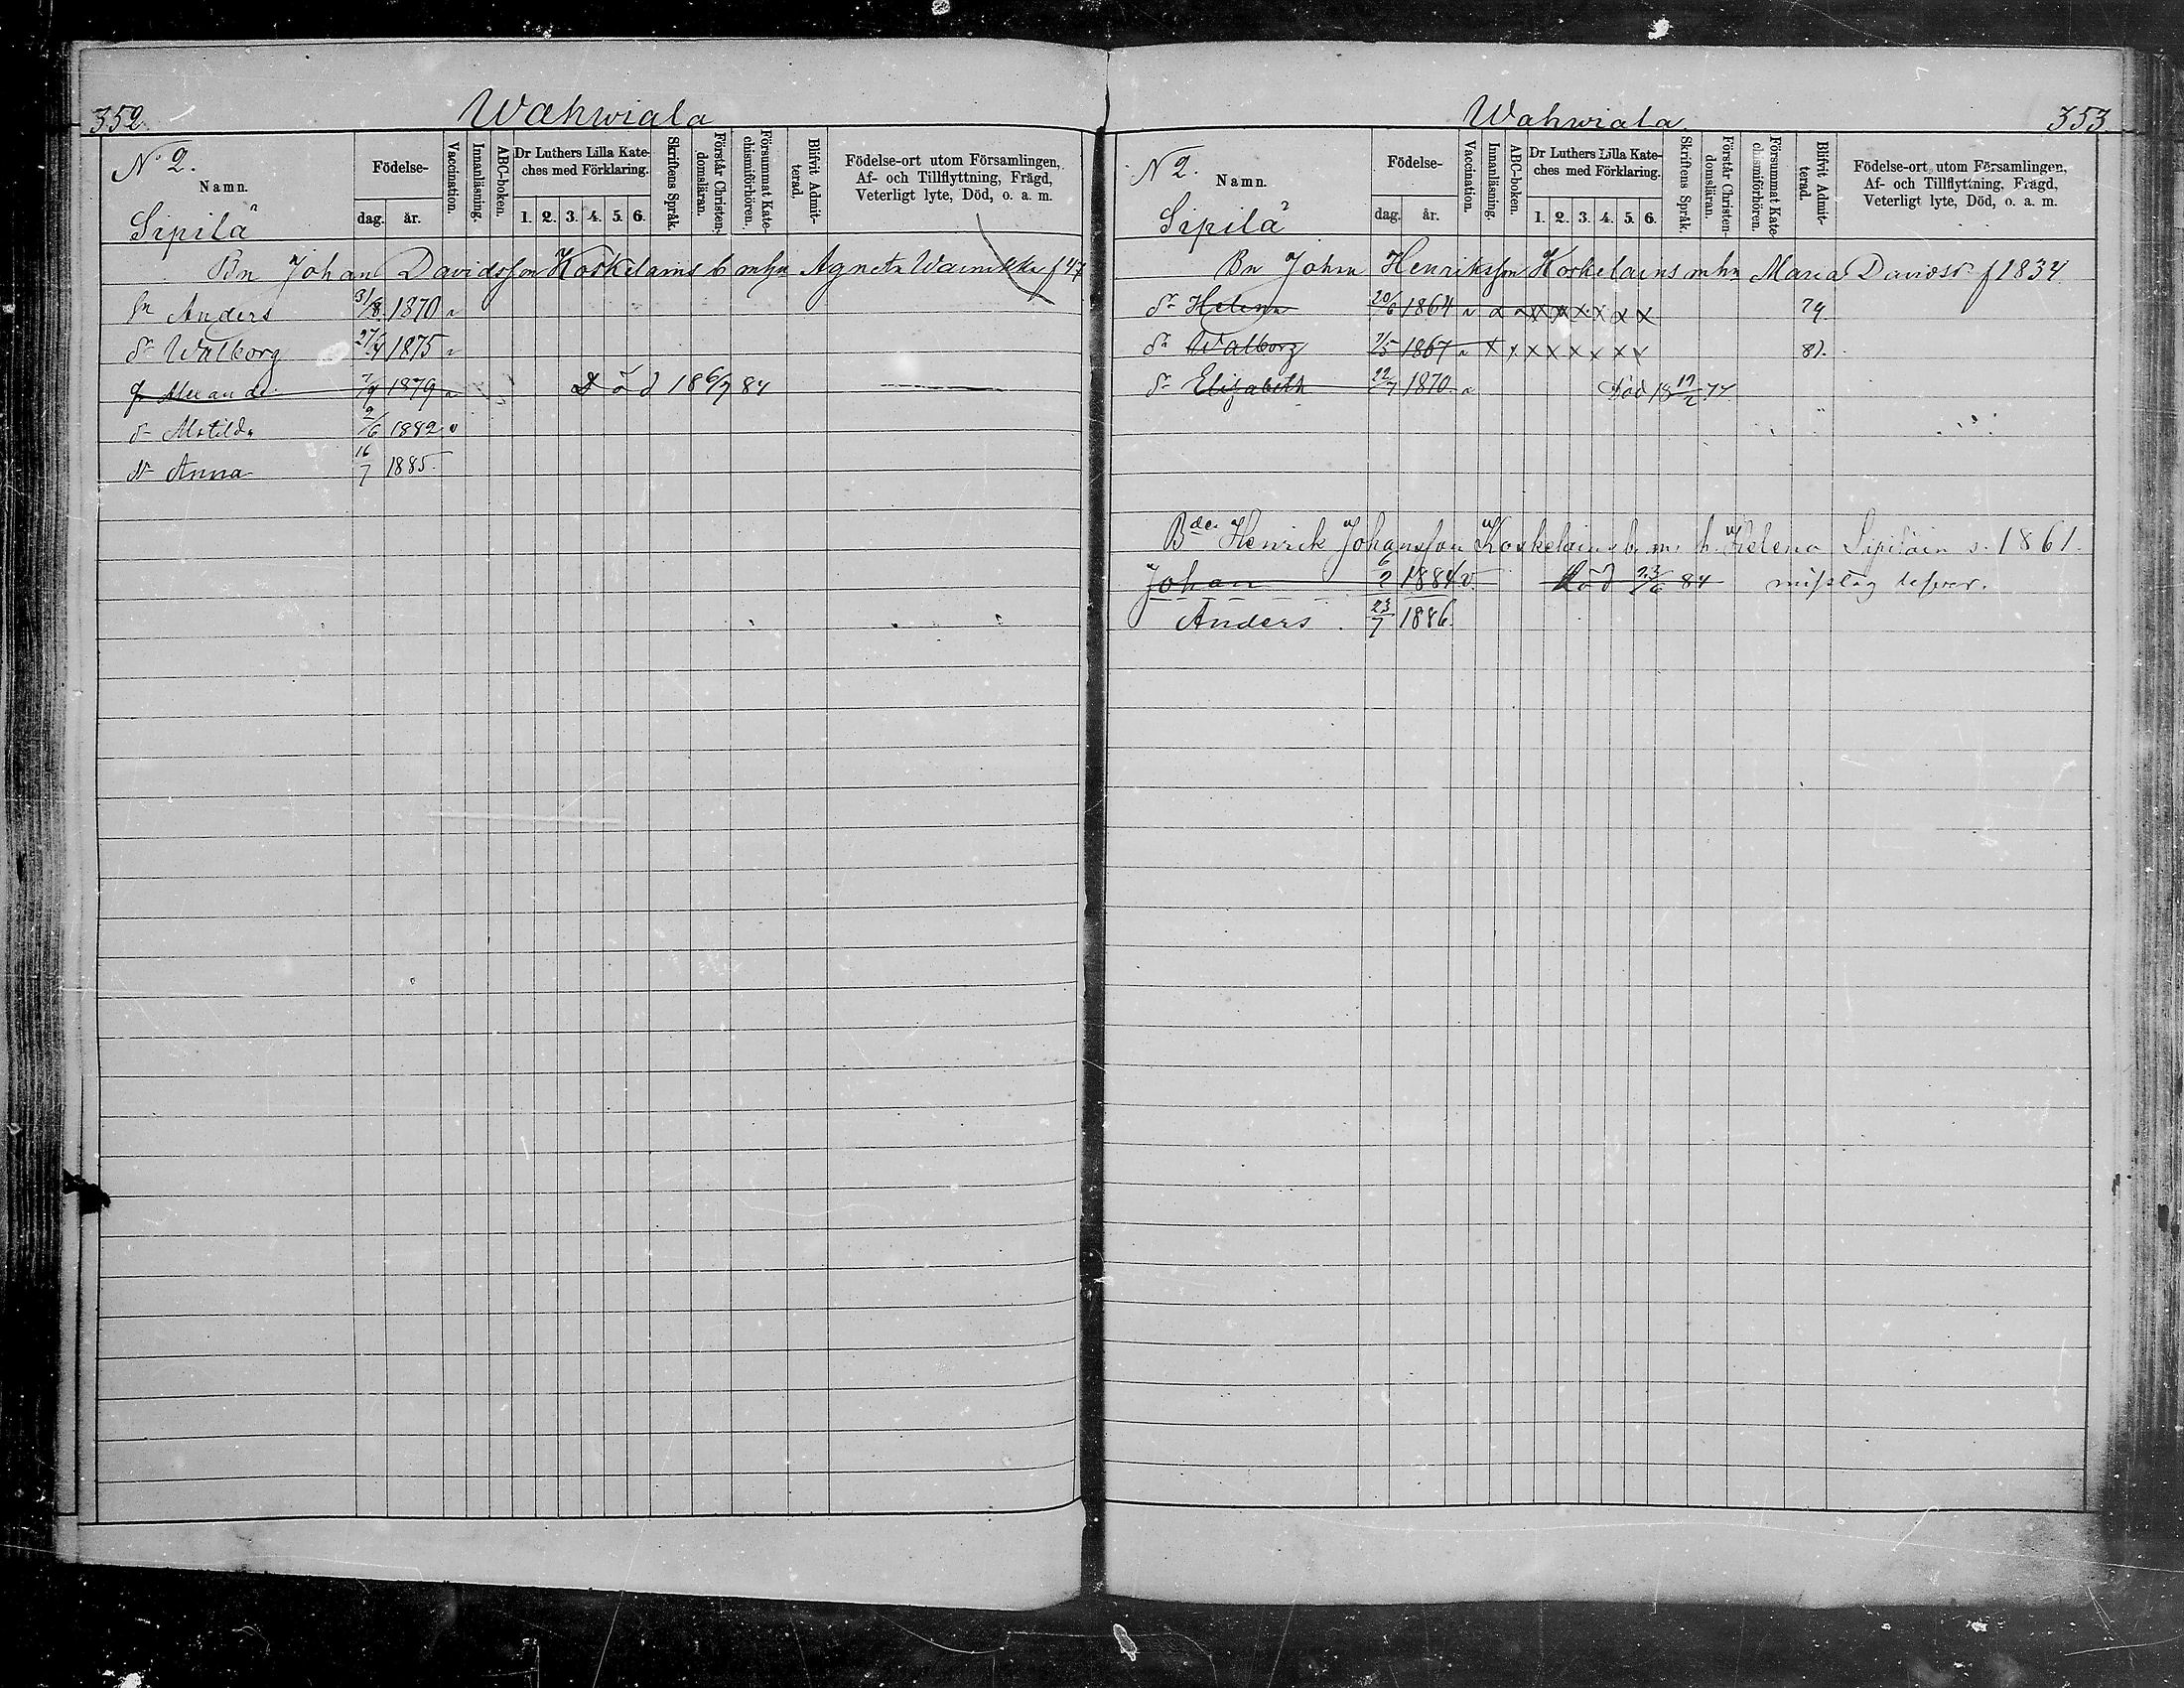 352.
Wahwiala
N:o 2.
Namn.
Födelse-
dag.
år.
Vaccination.
Innanläsning.
ABC-boken.
Dr Luthers Lilla Kate-
ches med Förklaring.
1. 2. 3. 4. 5. 6.
Skriftens Språk.
Förstår Christen-
domsläran.
Försummat Kate-
chismiförhören.
Blifvit Admit-
terad.
Födelse-ort utom Församlingen,
Af- och Tillflyttning, Frägd,
Veterligt lyte, Död, o. a. m.
Sipilä
Bn Johan Davidsson Koskelains b mhn Agneta f 47
sn Anders 31/8 1870 v
dr Walborg 27/4 1875 v
1879 v Död 18 6/7 84
dr Matilda 2/6 1882 v
dr Anna 16/7 1885.
Wahwiala
353.
N 2.
Namn.
Födelse-
dag.
år.
Vaccination.
Innanläsning.
ABC-boken.
Dr Luthers Lilla Kate-
ches med Förklaring.
1. 2. 3. 4. 5. 6.
Skriftens Språk.
Förstår Christen-
domsläran.
Försummat Kate-
chismiförhören.
Blifvit Admit-
terad.
Födelse-ort utom Församlingen,
Af- och Tillflyttning, Frägd,
Veterligt lyte, Död, o. a. m.
Sipilä
Bn Johan Henriksson Koskelains mhn Maria Davidsdr f 1834
dr Helena 20/6 1864 v x x x x x x x x 79.
dr Walborg 7/5 1867 v x x x x x x x x
dr Elizabeth 22/7 1870 v Död 18 77
Bde Henrik Johansson Koskelain b. m. h. Helena Sipiläin s. 1861.
Johan 6/2 1884 v. Död 23/6 84 misstag
Anders 23/7 1886.